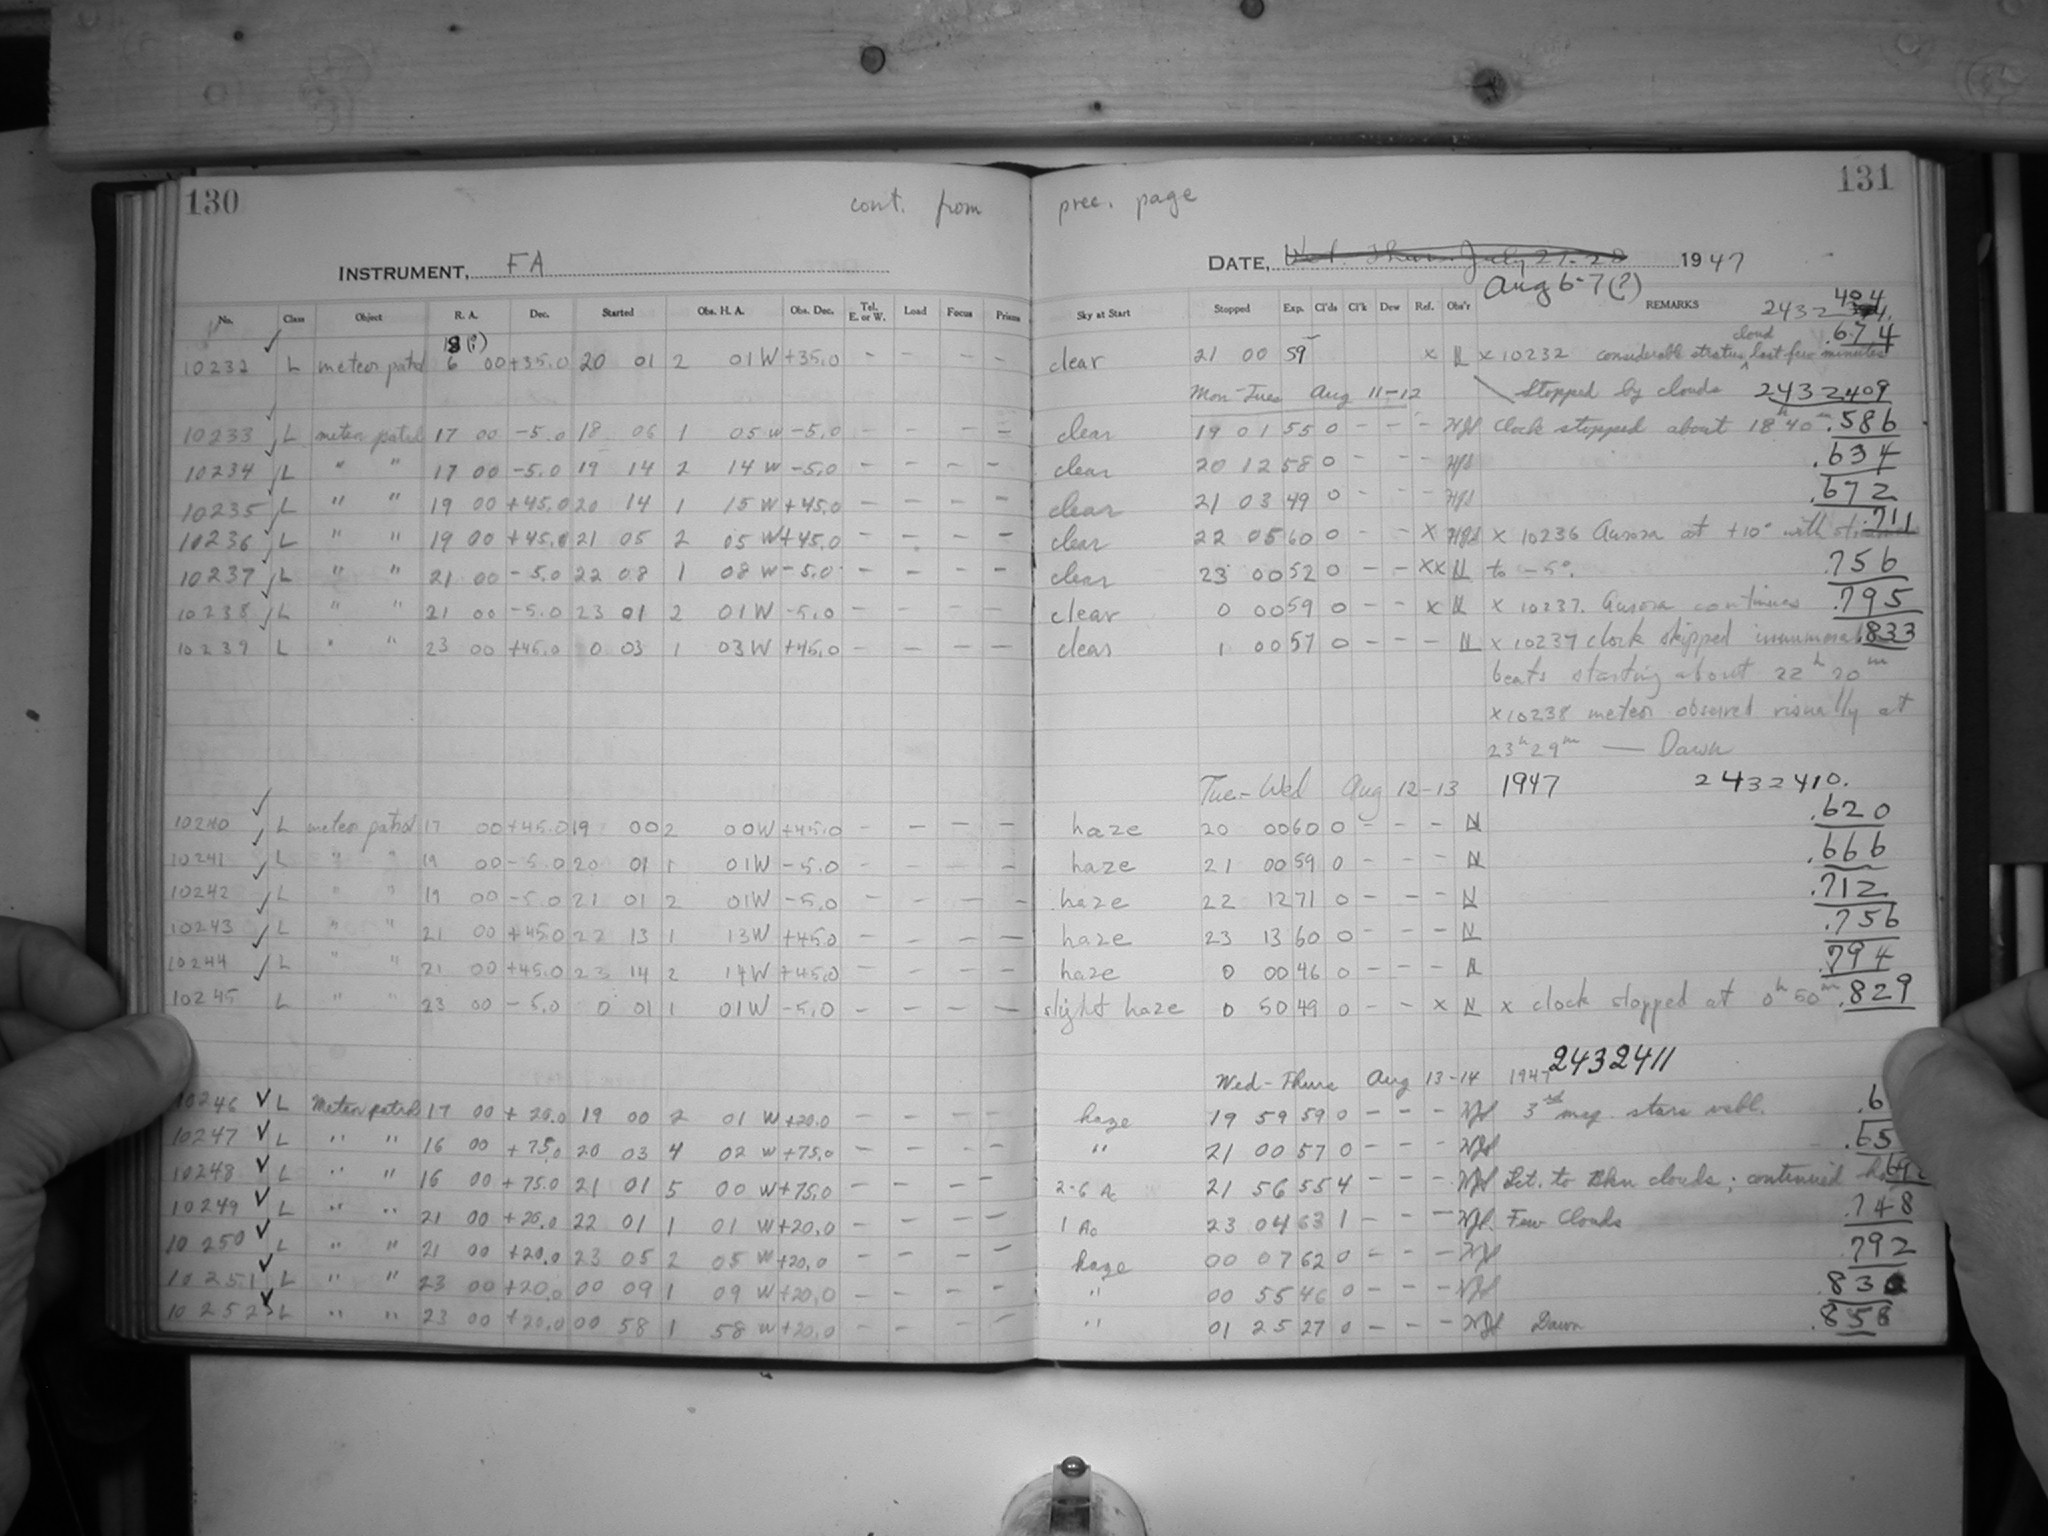 130
131
cont. from prec. page
INSTRUMENT, FA
DATE, Wed. Thurs. July 27-28 1947
Aug 6-7(?)
No. Class Object R. A. Dec. Started Obs. H. A. Obs. Dec. Tel. E. or W. Load Focus Prisms Sky at Start Stopped Exp. Cl'ds Cl'k Dew Ref. Obs'r REMARKS 2432 404
18(?) cloud .674
10232 ✓ L meteor patrol 6 00 +35.0 20 01 2 01 W +35.0 - - - - clear 21 00 59 x N x 10232 considerable stratus ^ last few minutes
Mon-Tues Aug 11-12 Stopped by clouds 2432409
10233 ✓ L meteor patrol 17 00 -5.0 18 06 1 05 W -5.0 - - - - clear 19 01 55 0 - - - Clock stopped about 18h 40m .586
10234 ✓ L " " 17 00 -5.0 19 14 2 14 W -5.0 - - - - clear 20 12 58 0 - - - .634
10235 ✓ L " " 19 00 +45.0 20 14 1 15 W +45.0 - - - - clear 21 03 49 0 - - - .672
10236 ✓ L " " 19 00 +45.0 21 05 2 05 W +45.0 - - - - clear 22 05 60 0 - - x x 10236 Aurora at +10° with .711
10237 ✓ L " " 21 00 -5.0 22 08 1 08 W -5.0 - - - - clear 23 00 52 0 - - xx N to -5°. .756
10238 ✓ L " " 21 00 -5.0 23 01 2 01 W -5.0 - - - - clear 0 00 59 0 - - x N x 10237. Aurora continues .795
10239 ✓ L " " 23 00 +45.0 0 03 1 03 W +45.0 - - - - clear 1 00 57 0 - - - N x 10237 clock skipped .833
beats starting about 22h 20m
x 10238 meteor observed visually at
23h 29m — Dawn
Tue-Wed Aug 12-13 1947 2432410.
10240 ✓ L meteor patrol 17 00 +45.0 19 00 2 00 W +45.0 - - - - haze 20 00 60 0 - - - N .620
10241 ✓ L " " 19 00 -5.0 20 01 1 01 W -5.0 - haze 21 00 59 0 - - - N .666
10242 ✓ L " " 19 00 -5.0 21 01 2 01 W -5.0 - - - - haze 22 12 71 0 - - - N .712
10243 ✓ L " " 21 00 +45.0 22 13 1 13 W +45.0 - - - - haze 23 13 60 0 - - - N .756
10244 ✓ L " " 21 00 +45.0 23 14 2 14 W +45.0 - - - - haze 0 00 46 0 - - - N .794
10245 ✓ L " " 23 00 -5.0 0 01 1 01 W -5.0 - - - - slight haze 0 50 49 0 - - x N x clock stopped at 0h 50m .829
Wed-Thurs Aug 13-14 1947 2432411
10246 ✓ L Meteor patrol 17 00 +20.0 19 00 2 01 W +20.0 - - - - haze 19 59 59 0 - - - 3rd mag. stars visbl. .6
10247 ✓ L " " 16 00 +75.0 20 03 4 02 W +75.0 - - - - " 21 00 57 0 - - - .65
10248 ✓ L " " 16 00 +75.0 21 01 5 00 W +75.0 - - - - 2-6 Ac 21 56 55 4 - - - Sct. to Bkn clouds; continued
10249 ✓ L " " 21 00 +20.0 22 01 1 01 W +20.0 - - - - 1 Ac 23 04 63 1 - - - Few Clouds .748
10250 ✓ L " " 21 00 +20.0 23 05 2 05 W +20.0 - - - - haze 00 07 62 0 - - - .792
10251 ✓ L " " 23 00 +20.0 00 09 1 09 W +20.0 - - - - " 00 55 46 0 - - - .83
10252 ✓ L " " 23 00 +20.0 00 58 1 58 W +20.0 - - - - " 01 25 27 0 - - - Dawn .858